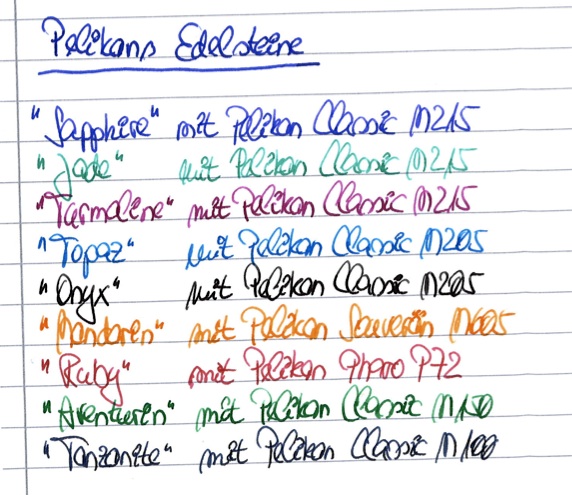 Pelikans Edelsteine
"Sapphire" mit Pelikan Classic M215
"Jade" mit Pelikan Classic M215
"Turmaline" mit Pelikan Classic M215
"Topaz" mit Pelikan Classic M205
"Onyx" mit Pelikan Classic M205
"Mandarin" mit Pelikan Souverän M605
"Ruby" mit Pelikan Pharo P72
"Aventurin" mit Pelikan Classic M150
"Tanzanite" mit Pelikan Classic M100